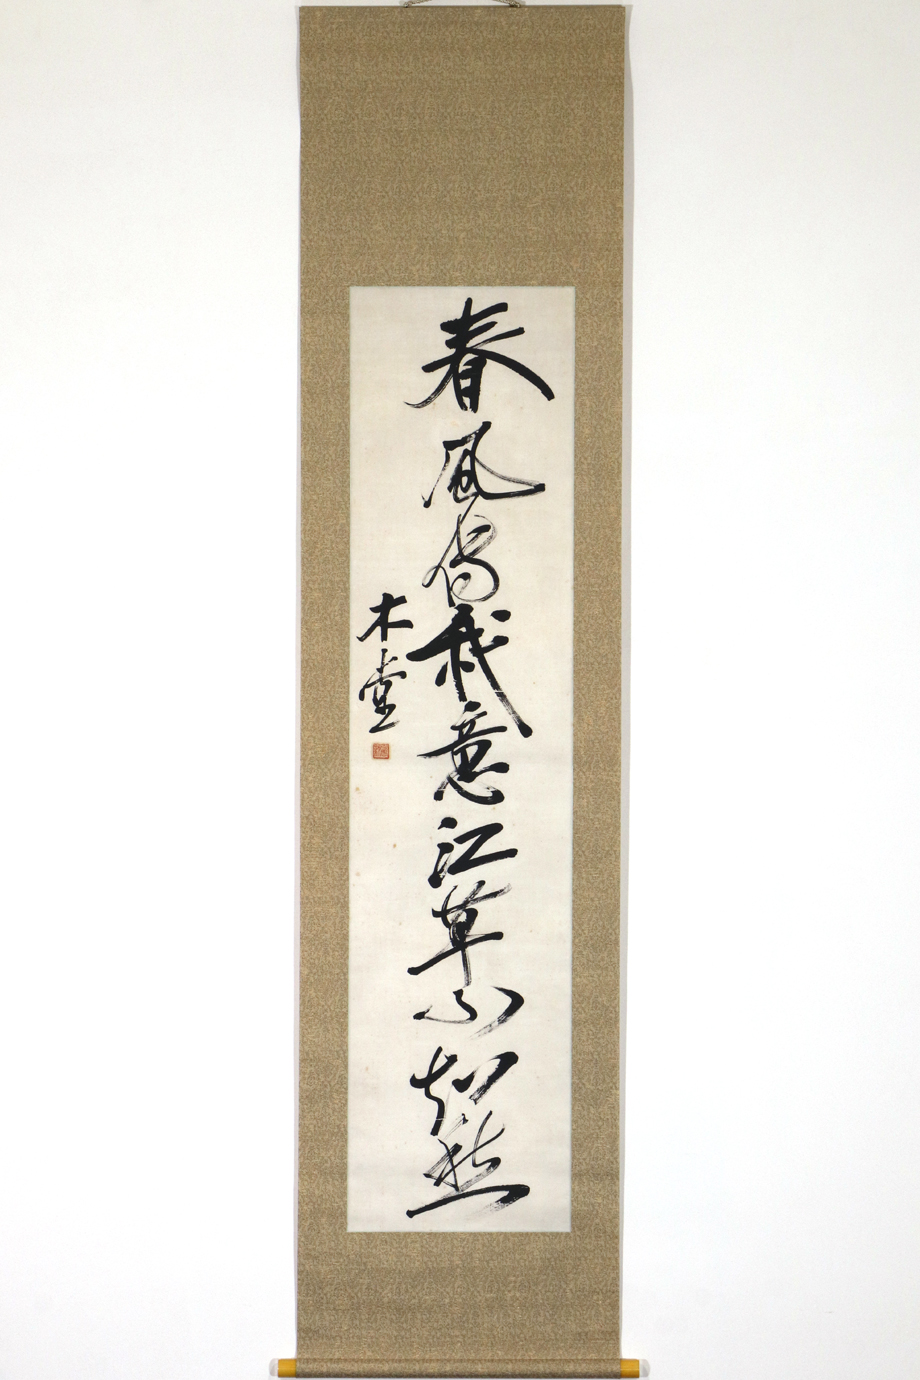 春風我意江草不知愁
木堂